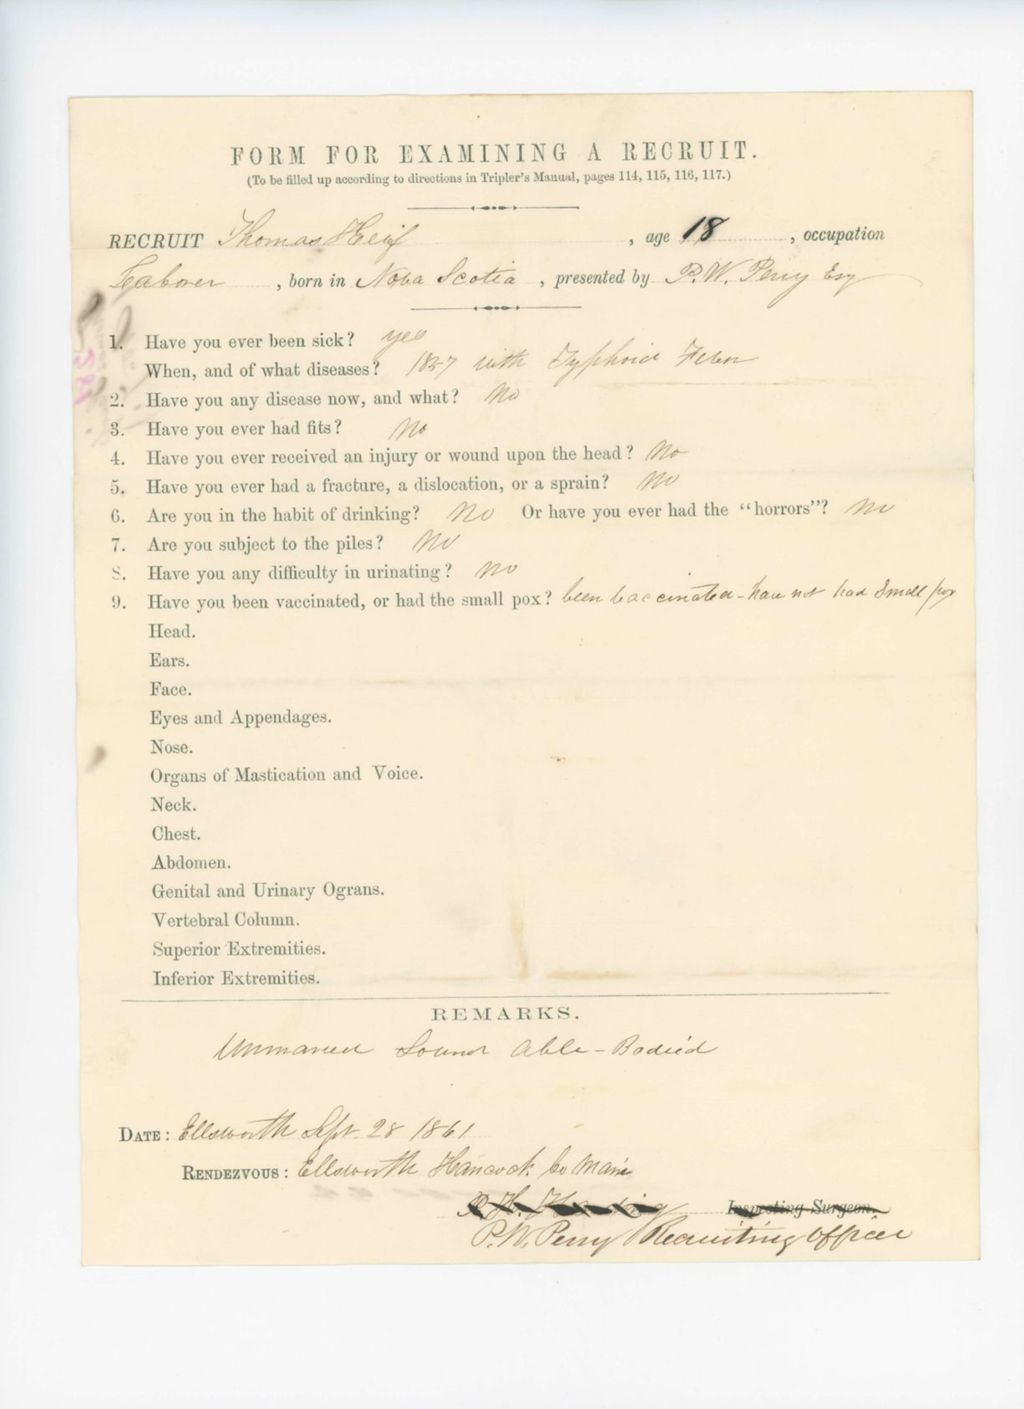 FORM FOR EXAMINING A RECRUIT.
(To be filled up according to directions in Tripler's Manual, pages 114, 115, 116, 117.)
RECRUIT Thomas , age 18 , occupation
Laborer , born in Nova Scotia , presented by P. W. Perry Esq
1. Have you ever been sick? yes
When, and of what diseases? 1857 with Typhoid Fever
2. Have you any disease now, and what? No
3. Have you ever had fits? No
4. Have you ever received an injury or wound upon the head? No
5. Have you ever had a fracture, a dislocation, or a sprain? No
6. Are you in the habit of drinking? No Or have you ever had the "horrors"? No
7. Are you subject to the piles? No
8. Have you any difficulty in urinating? No
9. Have you been vaccinated, or had the small pox? been vaccinated - have not had Small pox
Head.
Ears.
Face.
Eyes and Appendages.
Nose.
Organs of Mastication and Voice.
Neck.
Chest.
Abdomen.
Genital and Urinary Ograns.
Vertebral Column.
Superior Extremities.
Inferior Extremities.
REMARKS.
Unmarried Sound Able-Bodied
DATE: Ellsworth Sept. 28 1861
RENDEZVOUS: Ellsworth Hancock Co Maine
Inspecting Surgeon.
P. W. Perry Recruiting Officer